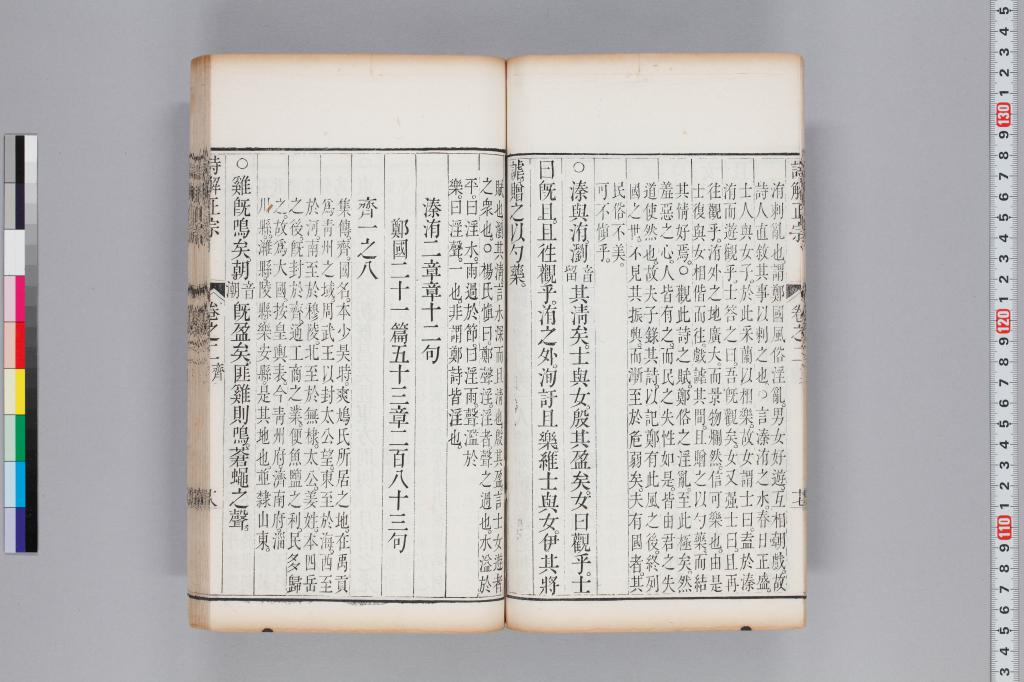 詩解正宗 卷之二
洧刺亂也謂鄭國風俗淫亂男女好遊互相謔戲故
詩人直敘其事以刺之也○言溱洧之水春日正盛
士人與女子於此采蘭以相樂故女謂士曰盍於溱
洧而遊觀乎士答之曰吾既觀矣女又強士曰且再
往觀乎洧外之地廣大而景物爛然信可樂也由是
士復與女相偕而往戲謔其間且贈之以勺藥而結
其情好焉○觀此詩之賦鄭俗之淫亂至此極矣然
羞惡之心人皆有之而民之失性如是皆由君之失
道使然也故夫子錄其詩以記鄭有此風之後終列
國之世不見其振興而漸至於危弱矣夫有國者其
民俗不美
可不慎乎
○溱與洧瀏音留其清矣士與女殷其盈矣女曰觀乎士
曰既且且往觀乎洧之外洵訏且樂維士與女伊其將
謔贈之以勺藥
賦也瀏其清言水深而且清也殷其盈言士女遊者
之衆也○楊氏慎曰鄭聲淫淫者聲之過也水溢於
平曰淫水雨過於節曰淫雨聲濫於
樂曰淫聲一也非謂鄭詩皆淫也
溱洧二章章十二句
鄭國二十一篇五十三章二百八十三句
齊一之八
集傳齊國名本少昊時爽鳩氏所居之地在禹貢
爲青州之域周武王以封太公望東至於海西至
於河南至於穆陵北至於無棣太公姜姓本四岳
之後既封於齊通工商之業便魚鹽之利民多歸
之故爲大國按皇輿表今青州府濟南府淄
川縣濰縣陵縣樂安縣是其地也並隸山東
○雞既鳴矣朝音潮既盈矣匪雞則鳴蒼蠅之聲
詩解正宗 卷之二 齊